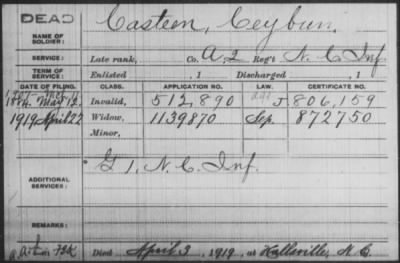 DEAD
NAME OF SOLDIER: Casteen, Ceyburn.
SERVICE: Late rank, Co. A, 2 Reg't N. C. Inf
TERM OF SERVICE: Enlisted , 1 Discharged , 1
DATE OF FILING. CLASS. APPLICATION NO. LAW. CERTIFICATE NO.
May 12. Invalid, 512,890 J. 806,159
1919 April 22 Widow, 1139870 Sep. 872750
Minor,
ADDITIONAL SERVICES: G 1, N. C. Inf.
REMARKS:
Died April 3, 1919, at Hallsville, N. C.